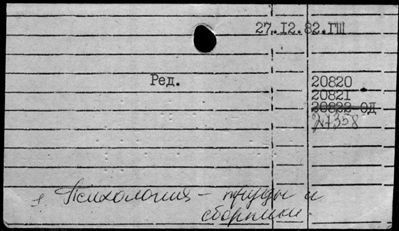 27.12.82.ГШ
Ред.
20820
20821
20822 ОД
Психология - труды и
сборники